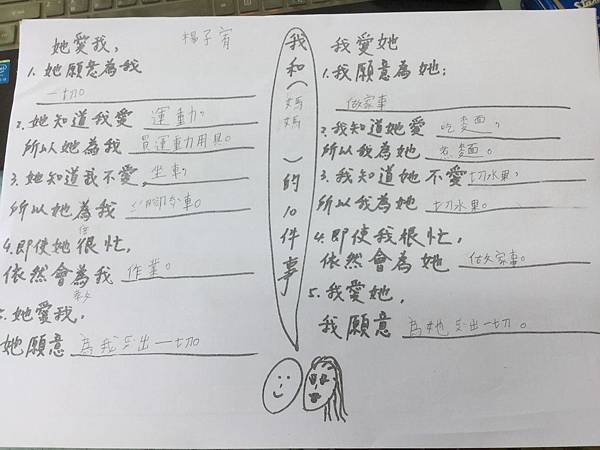 她愛我，
楊子宥
1. 她願意為我
一切。
2. 她知道我愛 運動，
所以她為我 買運動用具。
3. 她知道我不愛 坐車，
所以她為我 車。
4. 即使她很忙，
依然會為我 作業。
5. 她愛我，
她願意 為我 出一切
我和（媽媽）的10件事
我愛她
1. 我願意為她：
做家事
2. 我知道她愛 吃麵，
所以我為她 煮麵。
3. 我知道她不愛 切水果，
所以我為她 切水果。
4. 即使我很忙，
依然會為她 做家事。
5. 我愛她，
我願意 為她 出一切。